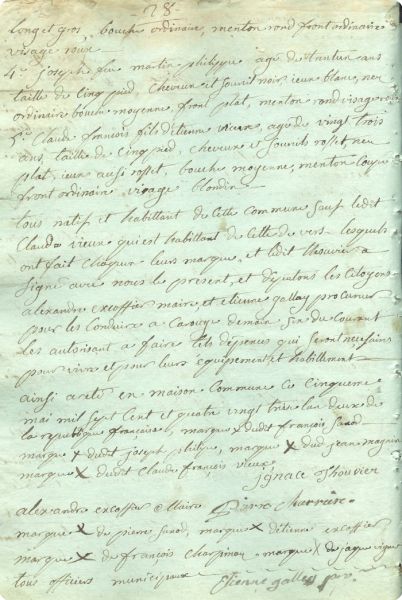 28
long et gros, bouche ordinaire, menton rond front ordinaire
visage roux
4º joseph feu martin philippe age de trentun ans
taille de cinq pied, cheveux et sourcil noir, ieux blanc, nez
ordinaire bouche moyenne, front plat, menton rond visage
5º Claude françois fils d'etienne vieux, age de vingt trois
ans, taille de cinq pied, cheveux et sourcils rosset, nez
plat, ieux aussi rosset, bouche moyenne, menton coupe
front ordinaire visage blondin
tous natif et habittant de cette commune sauf ledit
Claude vieux qui est habittant de celle de vers lesquels
ont fait chaqun leurs marque, et ledit thouvier a
signe avec nous le present, et deputons les citoyens
alexandre excoffier maire, et etienne gallay procureur
pour les conduire a Carouge demain six du courant
les autorisant a faire tels depences qui seront necesaires
pour vivre et pour leurs equipement, et habillement
ainsi arete en maison commune ce cinquieme
mai mil sept cent et quatre vingt treise lan deux de
la republique française, marque x dudit françois
marque x dudit joseph philippe, marque x dud jean magnin
marque x dudit Claude françois vieux,
ignace thouvier
alexandre excoffier Maire pierre
marque x de pierre marque x d'etienne excoffier
marque x de françois Charpinon marque x de jaque vigne
tous officiers municipaux etienne gallay